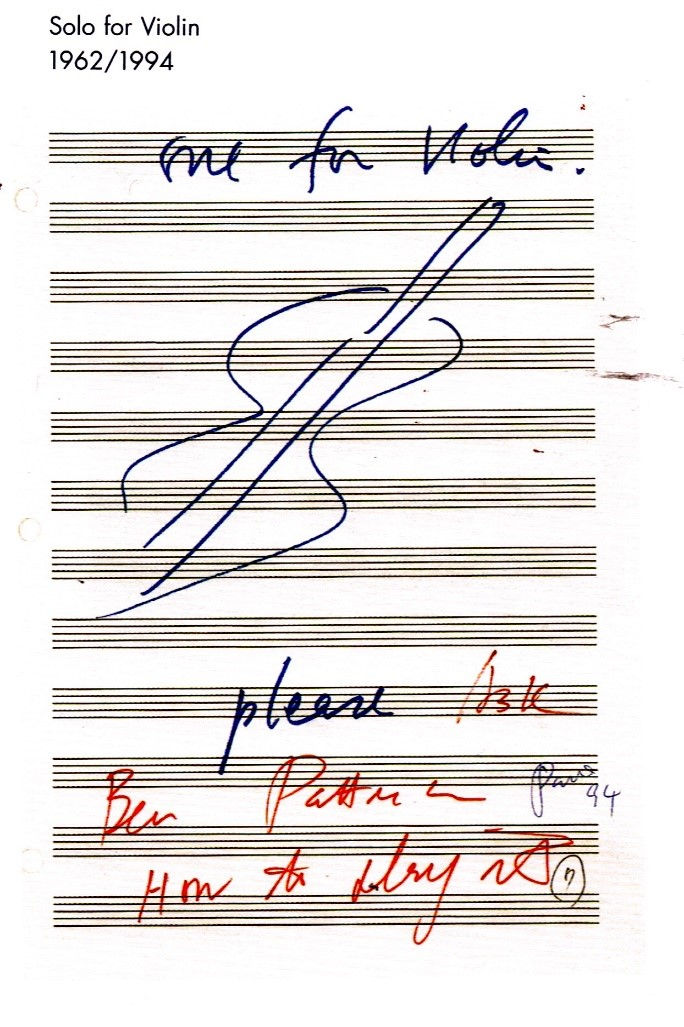 Solo for Violin
1962/1994
one for Violin.
please Ask
Ben Patterson
94
How to play it